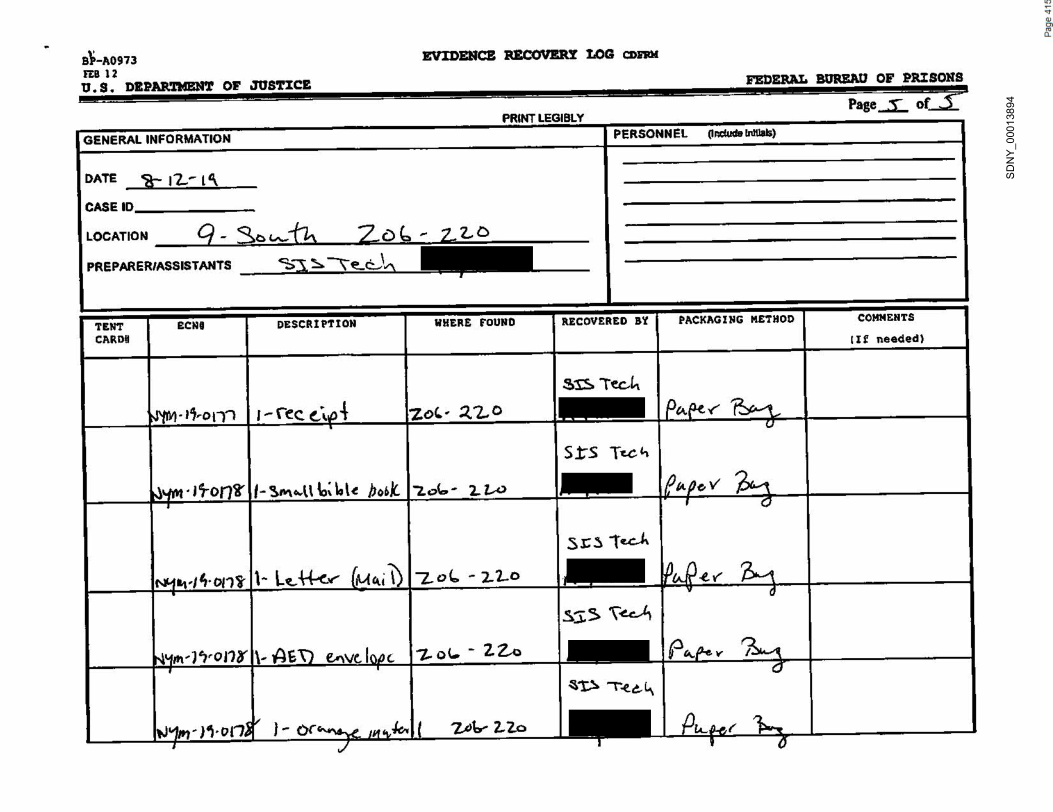 Page 415
SDNY_00013894
BP-A0973
FEB 12
U.S. DEPARTMENT OF JUSTICE
EVIDENCE RECOVERY LOG CDFRM
FEDERAL BUREAU OF PRISONS
PRINT LEGIBLY
Page 5 of 5
GENERAL INFORMATION
PERSONNEL (Include Initials)
DATE 8-12-19
CASE ID
LOCATION 9-South Z06-220
PREPARER/ASSISTANTS SIS Tech
TENT CARD# ECN# DESCRIPTION WHERE FOUND RECOVERED BY PACKAGING METHOD COMMENTS (If needed)
SIS Tech
NYM-19-0177 1-receipt Z06-220 Paper Bag
SIS Tech
NYM-19-0178 1-Small bible book Z06-220 Paper Bag
SIS Tech
NYM-19-0178 1-Letter (Mail) Z06-220 Paper Bag
SIS Tech
NYM-19-0178 1-AED envelope Z06-220 Paper Bag
SIS Tech
NYM-19-0178 1-orange Z06-220 Paper Bag